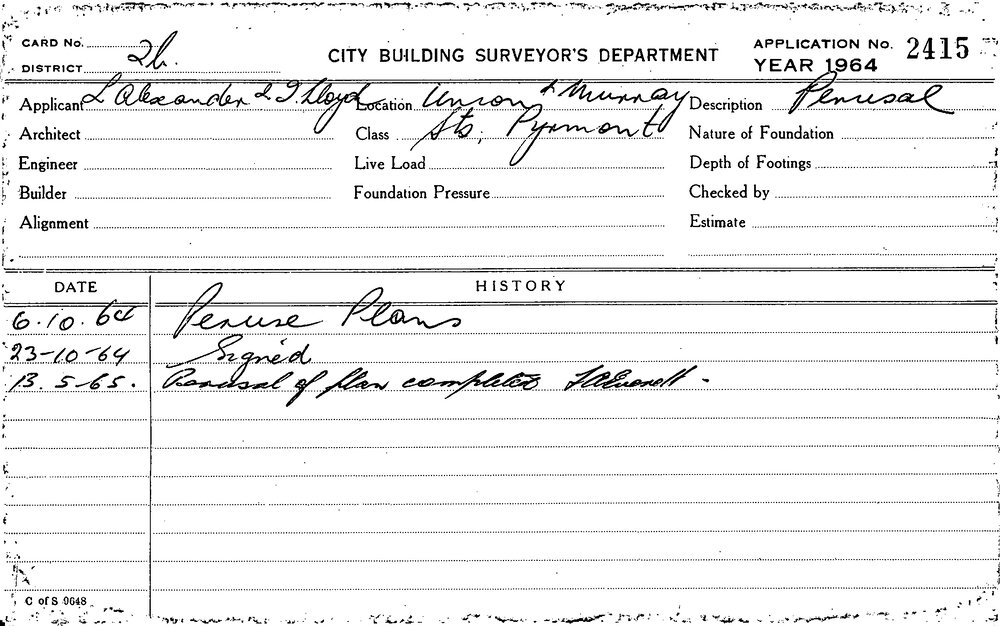 CARD No. 2b. CITY BUILDING SURVEYOR'S DEPARTMENT APPLICATION No. 2415
DISTRICT YEAR 1964
Applicant L Alexander & I Lloyd Location Union & Murray Description Perusal
Architect Class Sts, Pyrmont Nature of Foundation
Engineer Live Load Depth of Footings
Builder Foundation Pressure Checked by
Alignment Estimate
DATE HISTORY
6.10.64 Peruse Plans
23-10-64 Signed
13.5-65. Perusal of plan completed
C of S 9648